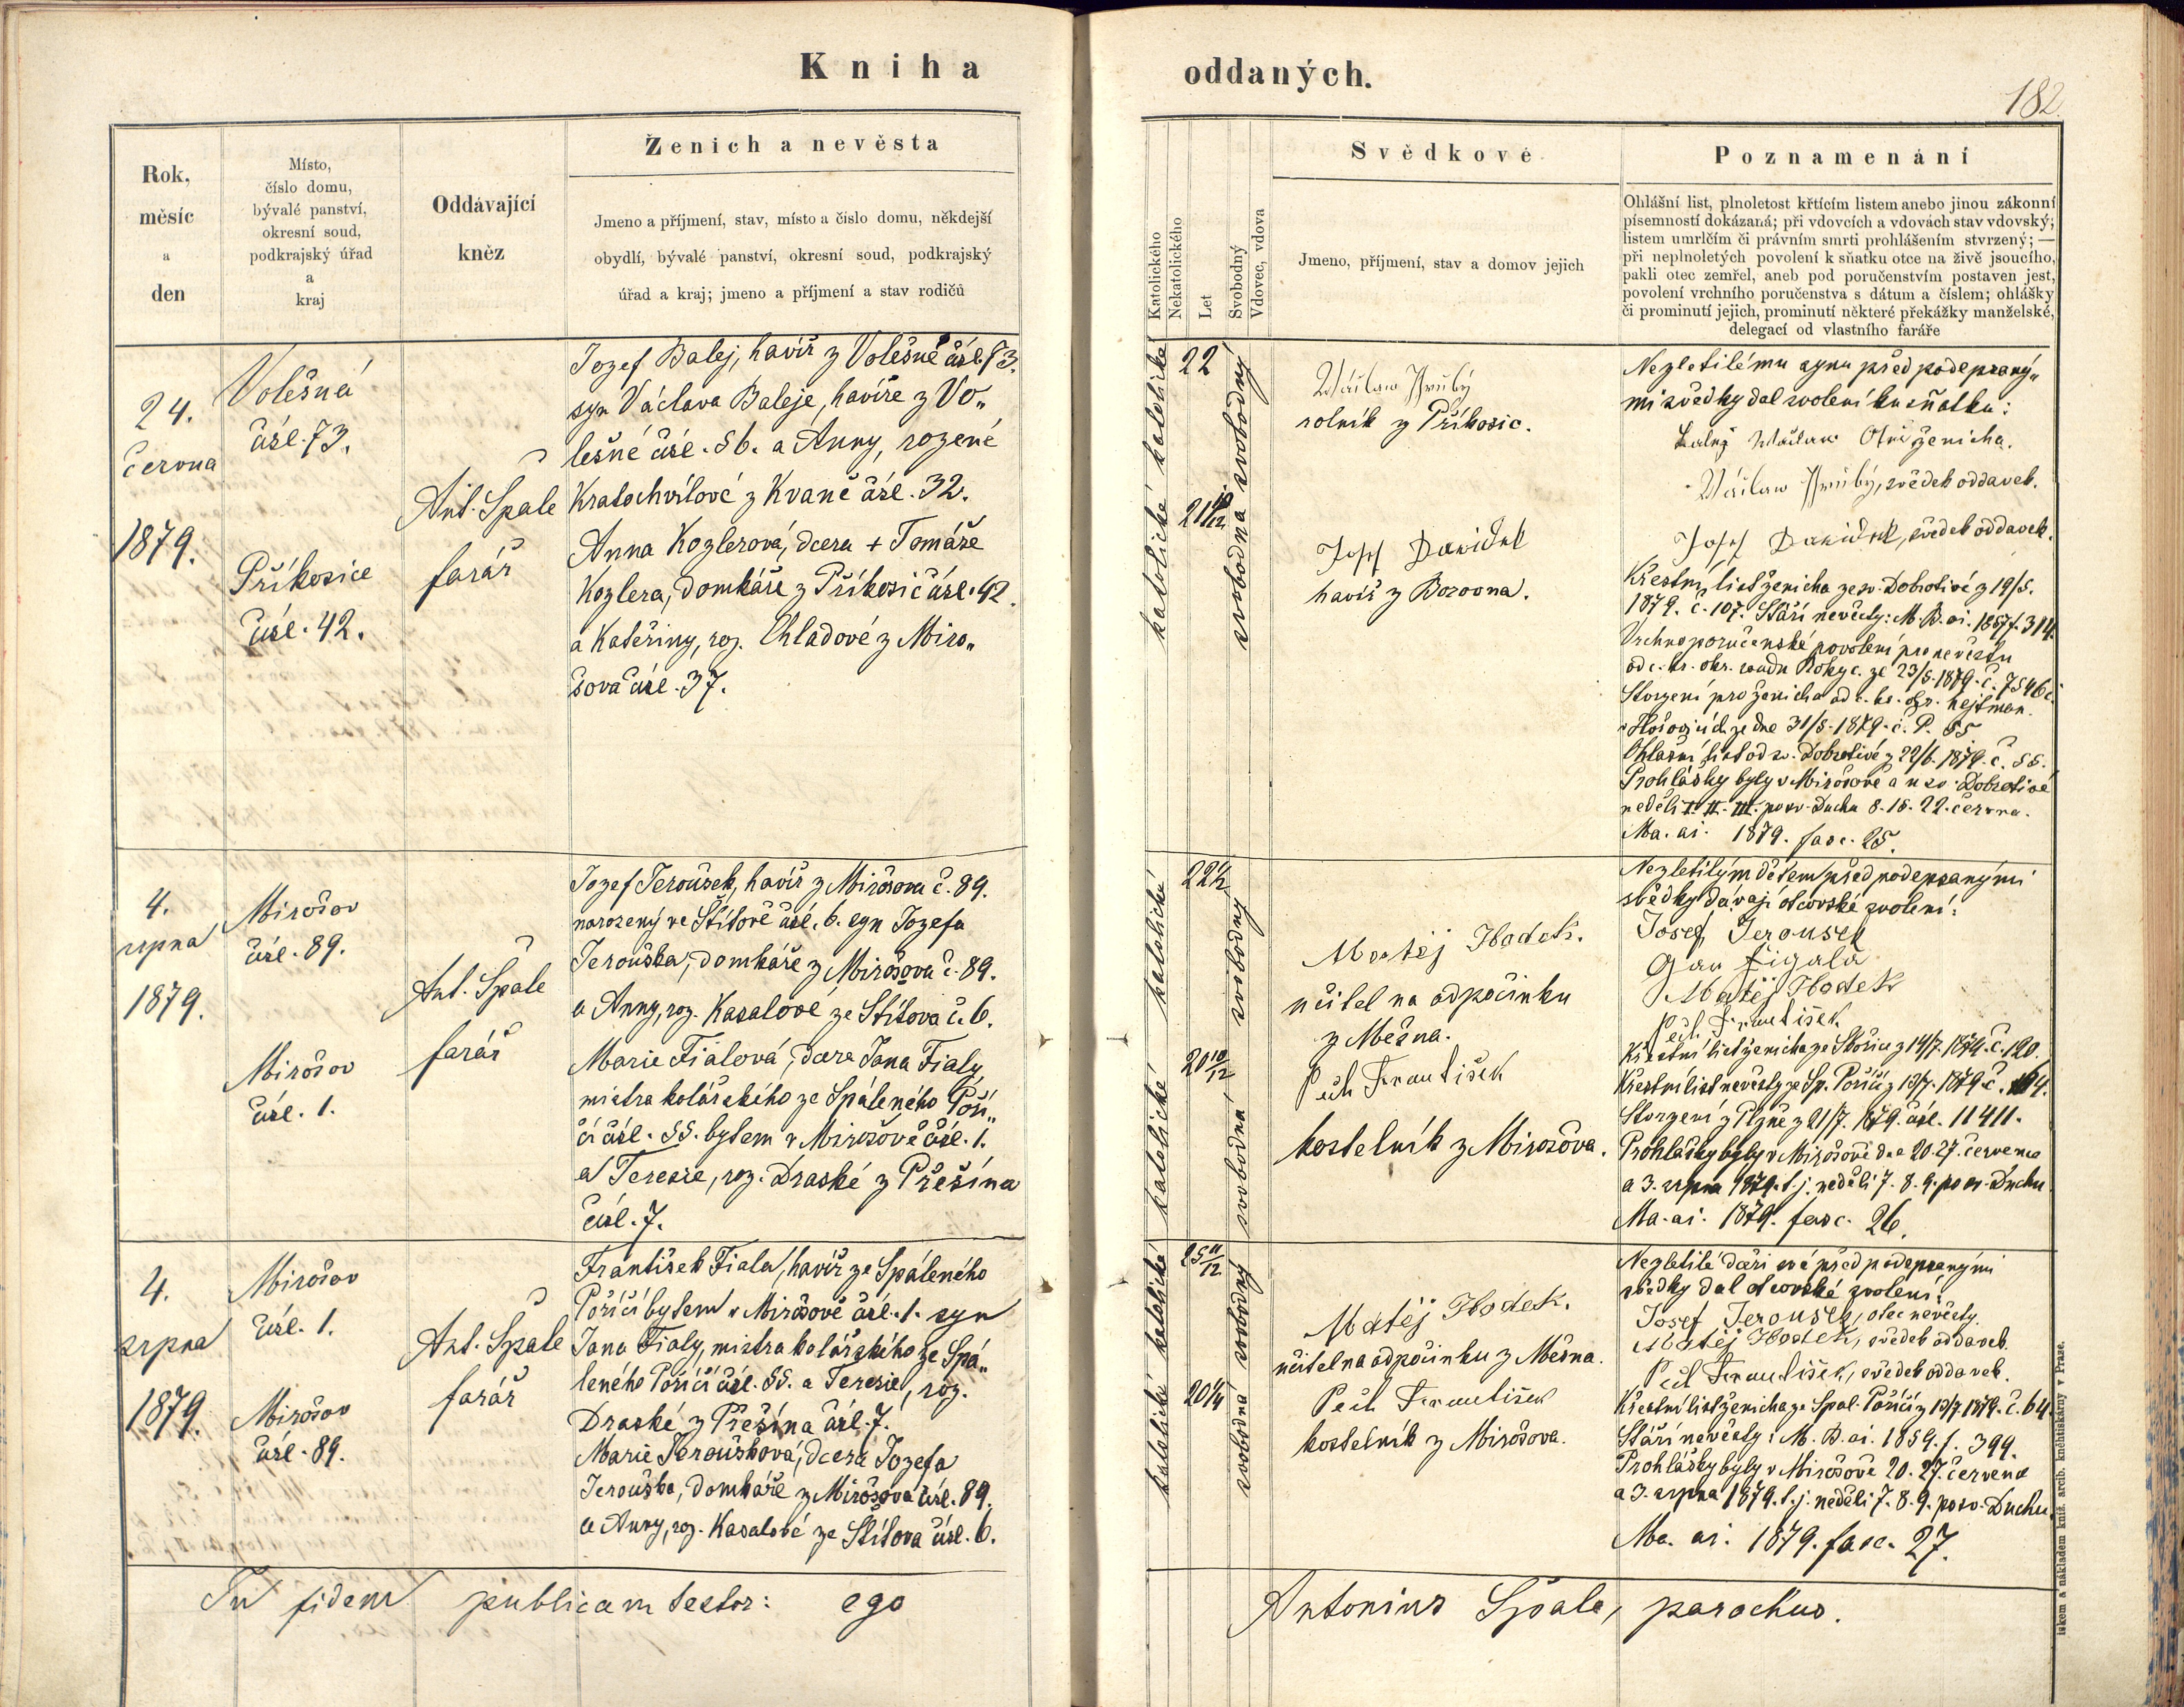 Kniha
oddaných.
182.
Rok,
měsíc
a
den
Místo,
číslo domu,
bývalé panství,
okresní soud,
podkrajský úřad
a
kraj
Oddávající
kněz
Ženich a nevěsta
Jmeno a příjmení, stav, místo a číslo domu, někdejší
obydlí, bývalé panství, okresní soud, podkrajský
úřad a kraj; jmeno a příjmení a stav rodičů
Katolického
Nekatolického
Let
Svobodný
Vdovec, vdova
Svědkové
Jmeno, příjmení, stav a domov jejich
Poznamenání
Ohlášní list, plnoletost křtícím listem anebo jinou zákonní
písemností dokázaná; při vdovcích a vdovách stav vdovský;
listem umrlčím či právním smrti prohlášením stvrzený; —
při neplnoletých povolení k sňatku otce na živě jsoucího,
pakli otec zemřel, aneb pod poručenstvím postaven jest,
povolení vrchního poručenstva s dátum a číslem; ohlášky
či prominutí jejich, prominutí některé překážky manželské,
delegací od vlastního faráře
24.
června
1879.
Volešná
čísl. 73.
Příkosice
čísl. 42.
Ant. Špale
farář
Jozef Balej, havíř z Volešné čísl. 73.
syn Václava Baleje, havíře z Vo„
lešné čísl. 56. a Anny, rozené
Kratochvílové z Kvaně čísl. 32.
Anna Kozlerová, dcera + Tomáše
Kozlera, domkáře z Příkosic čísl. 42.
a Kateřiny, roz. Chladové z Miro„
šova čísl. 37.
katolické katolické
22
21
svobodna svobodný
Wáclaw Hrubý
rolník z Příkosic.
Josef Dawídek
havíř z Borovna.
Nezletilému synu před podepsaný„
mi svědky dal svolení ku sňatku:
Balej Wáclaw Otec ženicha.
Wáclaw Hrubý, svědek oddavek.
Josef Dawídek, svědek oddavek.
Křestní list ženicha ze sv. Dobrotivé z 19/5.
1879. č. 107. Stáří nevěsty: M. B. ai. 1857 f. 314.
Vrchnoporučenské povolení pro nevěstu
od c. kr. okr. soudu Rokyc. ze 23/5. 1879. č. 7546 c.
Stvrzení pro ženicha od c. kr. okr. hejtman.
v Hořovicích ze dne 31/5. 1879. č. P. 55
Ohlašní list od sv. Dobrotivé z 22/6. 1879. č. 55.
Prohlášky byly v Mirošově a u sv. Dobrotivé
neděli I. II. III. po sv. Duchu 8. 15. 22. června.
Ma. ai. 1879. fasc. 25.
4.
srpna
1879.
Mirošov
čísl. 89.
Mirošov
čísl. 1.
Ant. Špale
farář
Jozef Jeroušek, havíř z Mirošova č. 89.
narozený ve Štítově čísl. 6. syn Jozefa
Jerouška, domkáře z Mirošova č. 89.
a Anny, roz. Kasalové ze Štítova č. 6.
Marie Fialová, dcera Jana Fialy,
mistra kolářského ze Spáleného Poři„
čí čísl. 55. bytem v Mirošově čísl. 1.
a Terezie, roz. Draské z Přešína
čísl. 7.
katolické katolické
22 1/2
20 10/12
svobodná svobodný
Matěj Hodek.
učitel na odpočinku
z Mešna.
Pech František
kostelník z Mirošova.
Nezletilým dětem před podepsanými
svědky dávají otcovské svolení:
Josef Jerousek
Jan Figala
Matěj Hodek
Pech František
Křestní list ženicha ze Skořice z 14/7. 1879. č. 120.
Křestní list nevěsty ze Sp. Poříčí z 13/7. 1879. č. 164.
Stvrzení z Plzně z 21/7. 1879. čísl. 11411.
Prohlášky byly v Mirošově dne 20. 27. července
a 3. srpna 1879. t. j. neděli 7. 8. 9. po sv. Duchu
Ma. ai. 1879. fasc. 26.
4.
srpna
1879.
Mirošov
čísl. 1.
Mirošov
čísl. 89.
Ant. Špale
farář
František Fiala, havíř ze Spáleného
Poříčí bytem v Mirošově čísl. 1. syn
Jana Fialy, mistra kolářského ze Spá„
leného Poříčí čísl. 55. a Terezie, roz.
Draské z Přešína čísl. 7.
Marie Jeroušková, dcera Jozefa
Jerouška, domkáře z Mirošova čísl. 89.
a Anny, roz. Kasalové ze Štítova čísl. 6.
katolické katolické
25 11/12
20 1/4
svobodná svobodný
Matěj Hodek.
učitel na odpočinku z Mešna.
Pech František
kostelník z Mirošova.
Nezletilé dceři své před podepsanými
svědky dal otcovské svolení:
Josef Jerousek, otec nevěsty.
Matěj Hodek, svědek oddavek.
Pech František, svědek oddavek.
Křestní list ženicha ze Spal. Poříčí z 13/7 1879. č. 64.
Stáří nevěsty: M. B. ai. 1859. f. 399.
Prohlášky byly v Mirošově 20. 27. července
a 3. srpna 1879. t. j. neděli 7. 8. 9. po sv. Duchu
Ma. ai. 1879. fasc. 27.
In fidem publicam testor: ego
Antonius Špale, parochus.
tiskem a nákladem kníž. arcib. knihtiskárny v Praze.